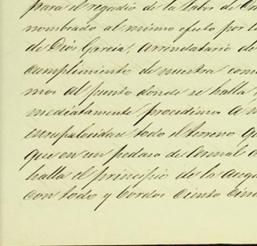 para el regadío de la Labor de
nombrado al mismo efecto por l
de Dios García, arrendatario de
cumplimiento de nuestra com
mos al punto donde se halla
mediatamente procedimos a m
escrupulosidad todo el terreno qu
que en un pedazo de
halla el principio de la
con todo y bordos ciento cin